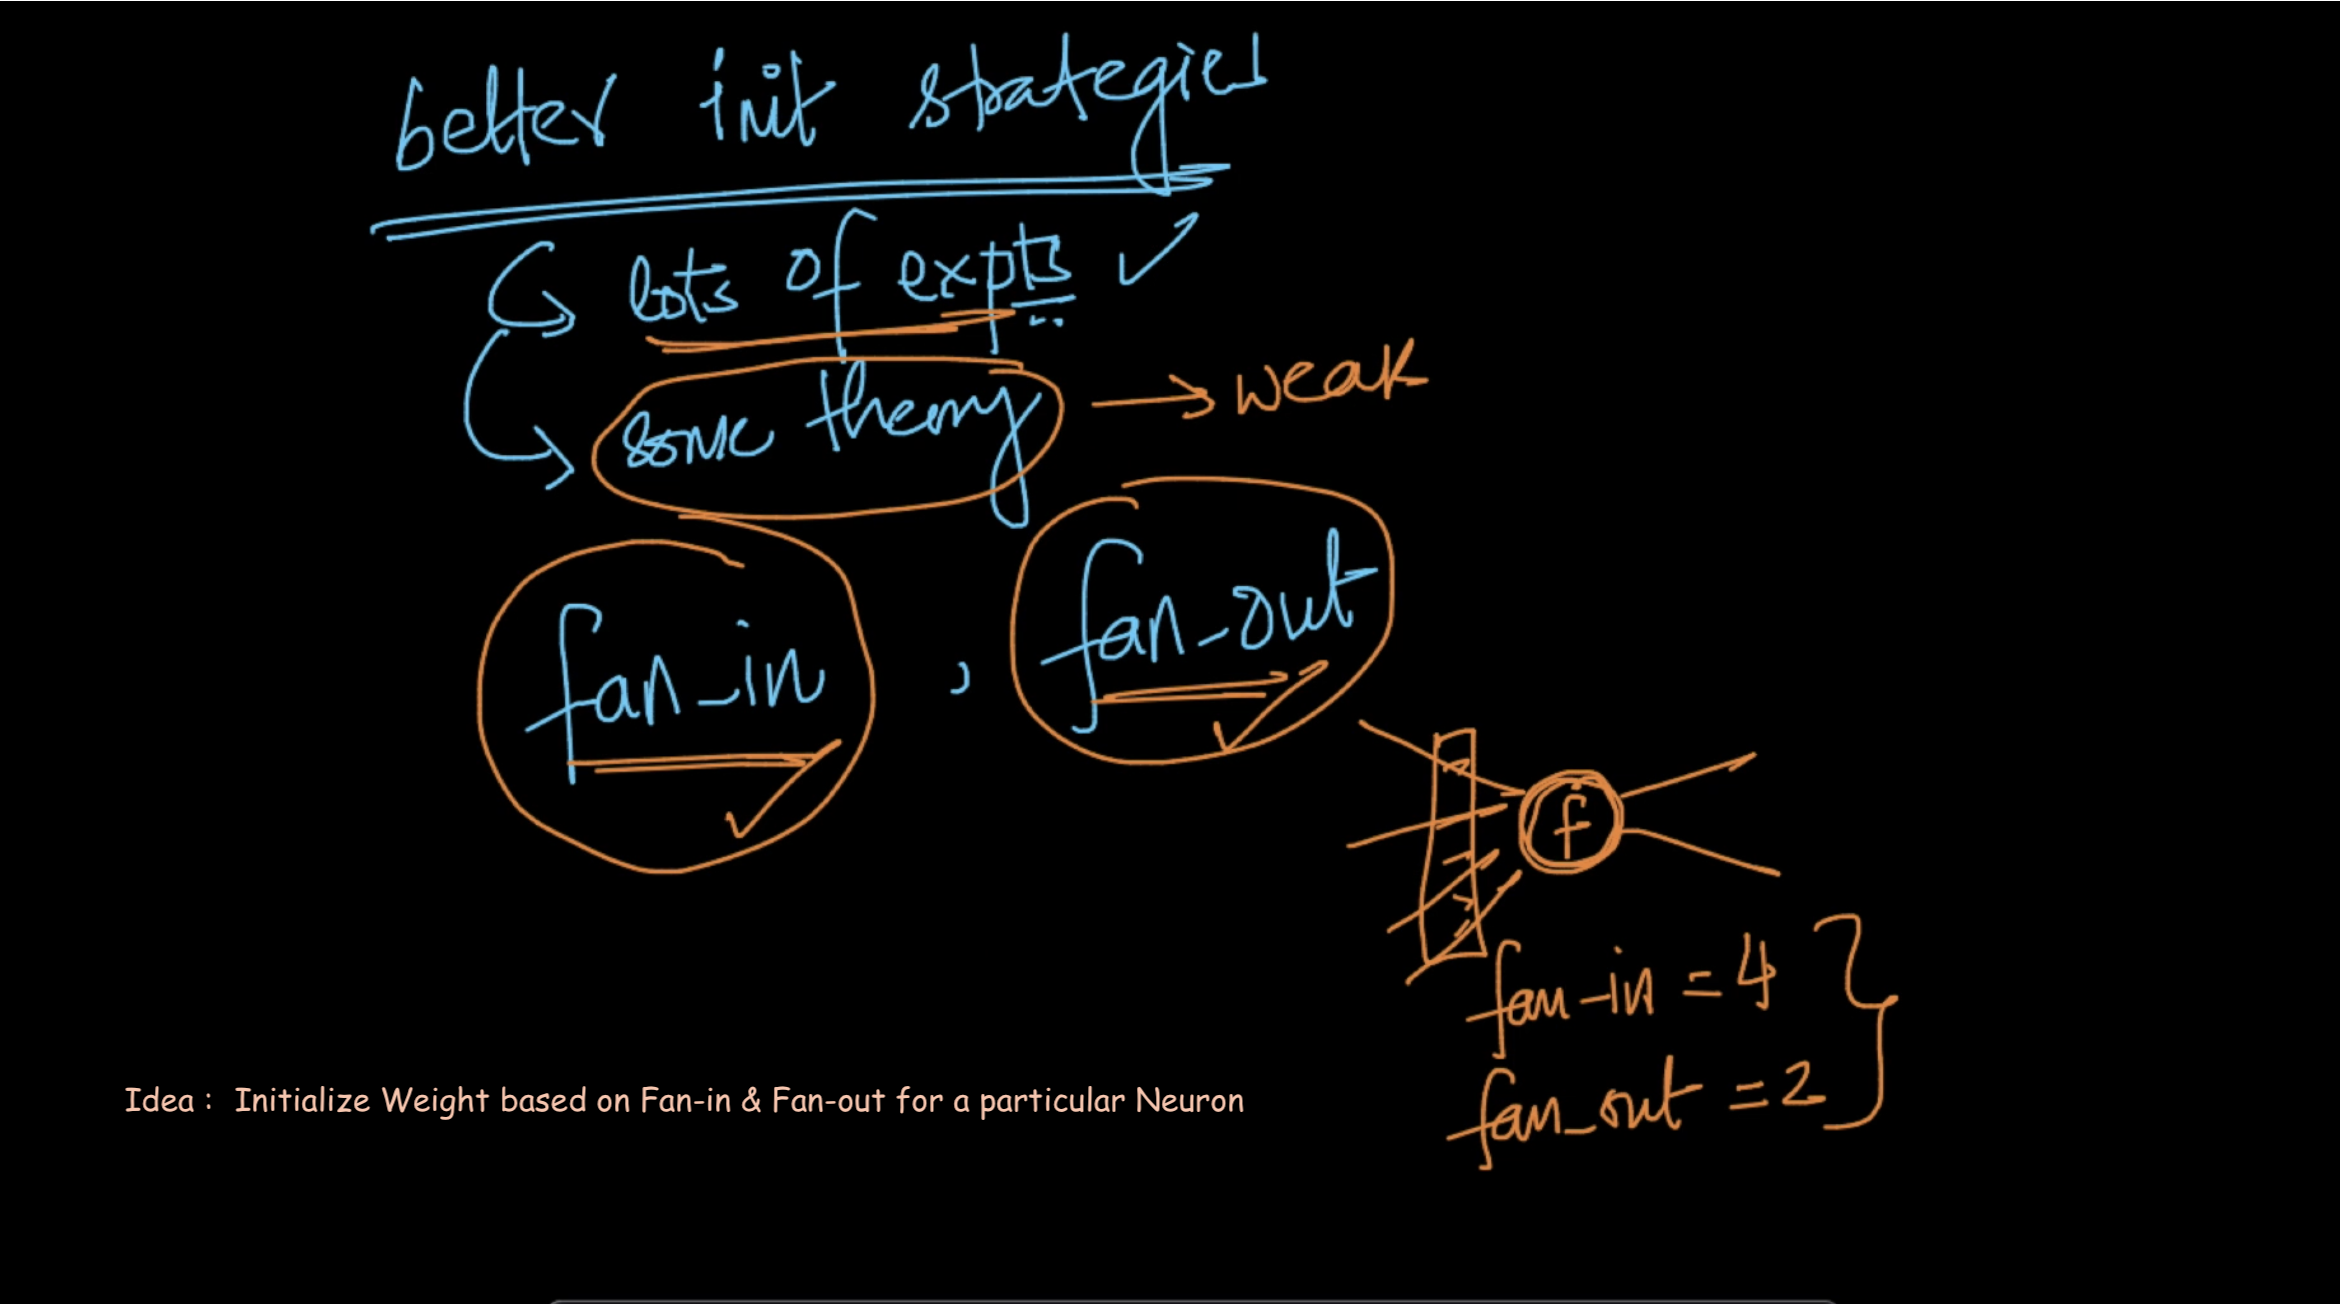 better init strategies
lots of expts
some theory → weak
fan-in , fan-out
f
fan-in = 4
fan-out = 2
Idea : Initialize Weight based on Fan-in & Fan-out for a particular Neuron